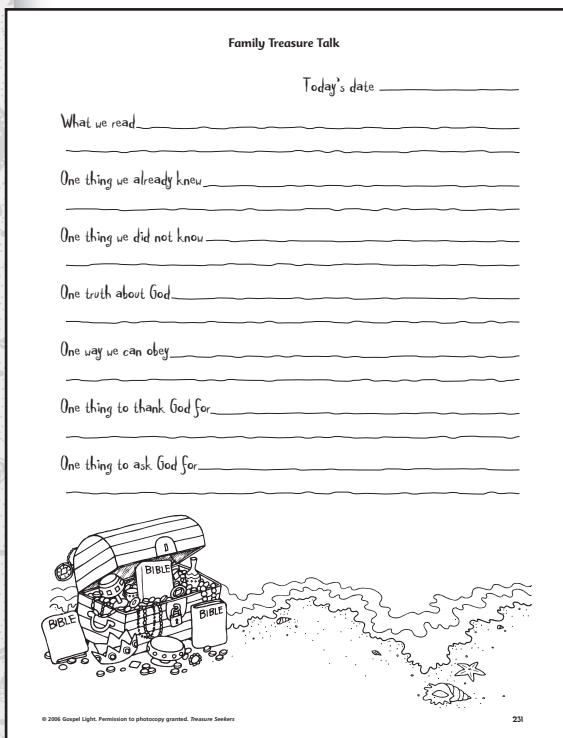 Family Treasure Talk
Today's date
What we read
One thing we already knew
One thing we did not know
One truth about God
One way we can obey
One thing to thank God for
One thing to ask God for
BIBLE
BIBLE
BIBLE
© 2006 Gospel Light. Permission to photocopy granted. Treasure Seekers
231